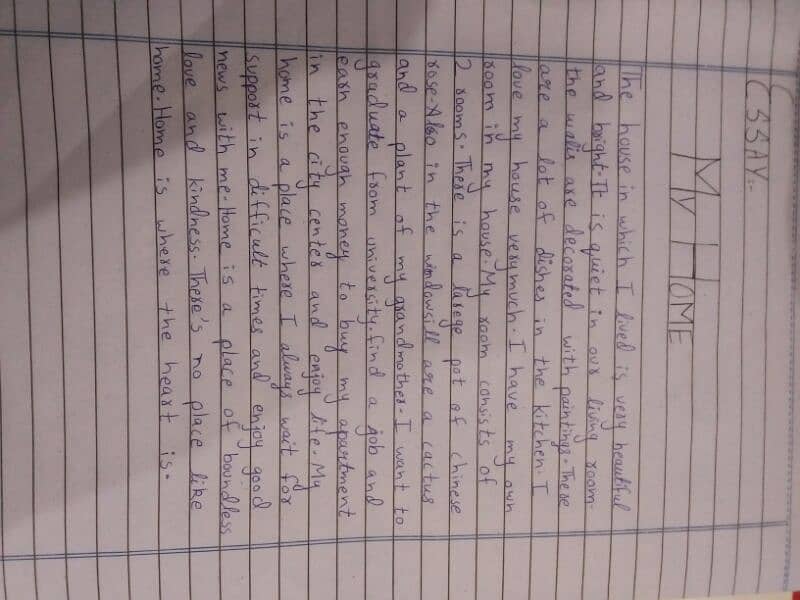 ESSAY:-
MY HOME
The house in which I lived is very beautiful
and bright. It is quiet in our living room.
the walls are decorated with paintings. There
are a lot of dishes in the kitchen. I
love my house verymuch. I have my own
room in my house. My room consists of
2 rooms. There is a larege pot of chinese
rose. Also in the windowsill are a cactus
and a plant of my grandmother. I want to
graduate from university. find a job and
earn enough money to buy my apartment
in the city center and enjoy life. My
home is a place where I always wait for
support in difficult times and enjoy good
news with me. Home is a place of boundless
love and kindness. There's no place like
home. Home is where the heart is.